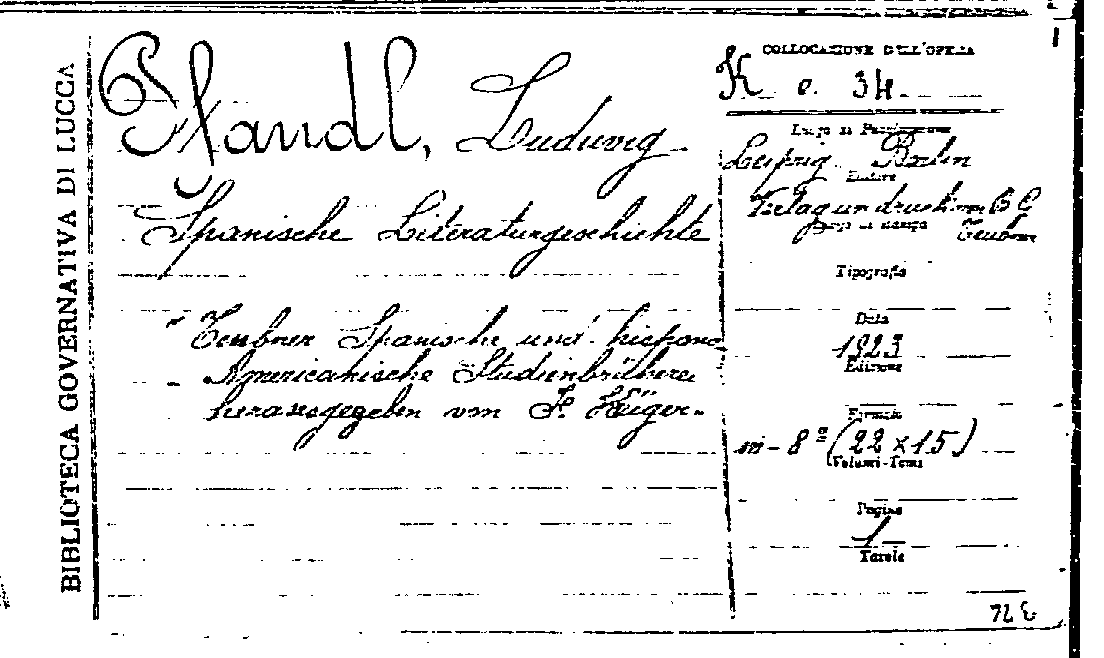 BIBLIOTECA GOVERNATIVA DI LUCCA
Pfandl, Ludwig
Spanische Literaturgeschichte
Teubner Spanische und hispano
Americanische Studienbrücherei
herausgegeben von F. Krüger.
COLLOCAZIONE DELL'OPERA
K e. 34.
Luogo di Pubblicazione
Leipzig Berlin
Editore
Verlag un druck von B G
Luogo di stampa
Teubner
Tipografia
Data
1923
Edizione
Formato
in-8º (22x15)
Volumi-Tomi
Pagine
1
Tavole